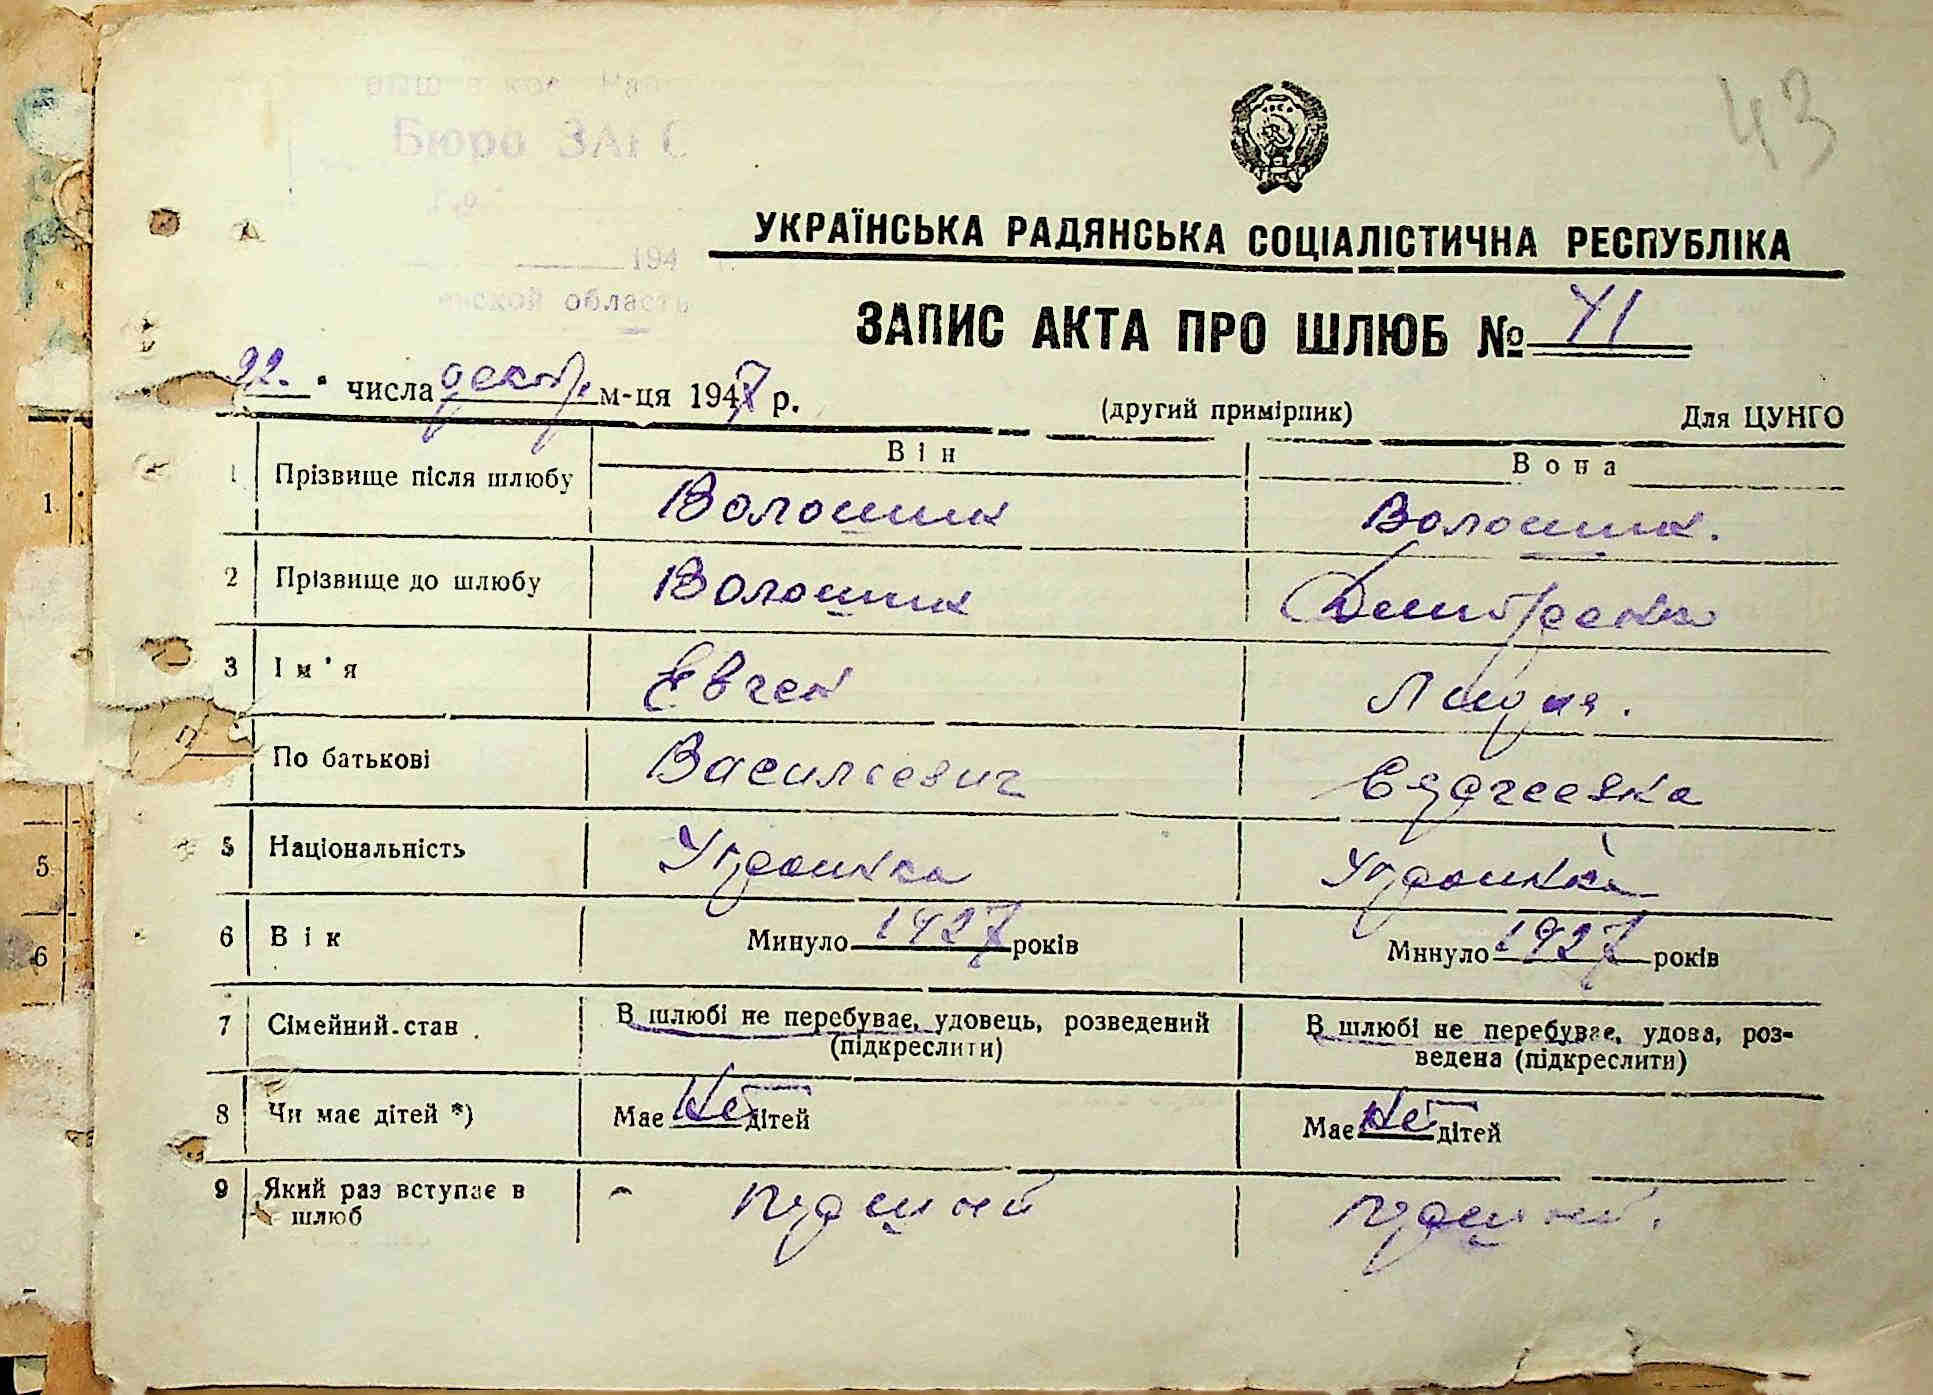 43
Бюро ЗАГС
194
ской область
УКРАЇНСЬКА РАДЯНСЬКА СОЦІАЛІСТИЧНА РЕСПУБЛІКА
ЗАПИС АКТА ПРО ШЛЮБ № 41
22. числа декабр. м-ця 1947 р. (другий примірник) Для ЦУНГО
Він Вона
1 Прізвище після шлюбу Волошин Волошин.
2 Прізвище до шлюбу Волошин Дмитренко
3 Ім'я Евген Лидия.
По батькові Васильевич
5 Національність Украинка Украинка
6 Вік Минуло 1927 років Минуло 1927 років
7 Сімейний стан В шлюбі не перебуває, удовець, розведений В шлюбі не перебуває, удова, роз-
(підкреслити) ведена (підкреслити)
8 Чи має дітей *) Має нет дітей Має нет дітей
9 Який раз вступає в
шлюб
1
5
6